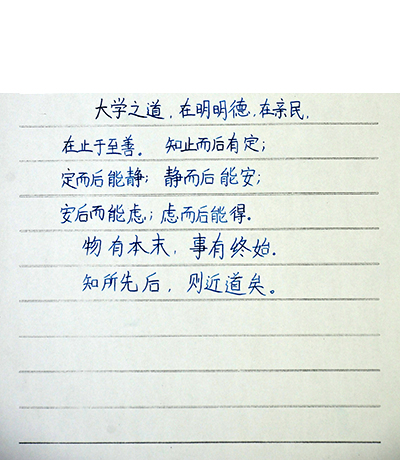 大学之道，在明明德，在亲民，
在止于至善。 知止而后有定；
定而后能静；静而后能安；
安后而能虑；虑而后能得。
物有本末，事有终始。
知所先后，则近道矣。